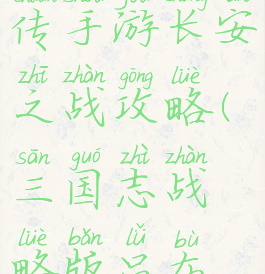 传手游长安
zhī zhàn gōng lüè
之战攻略(
sān guó zhì zhàn
三国志战
lüè bǎn lǚ bù
略版吕布